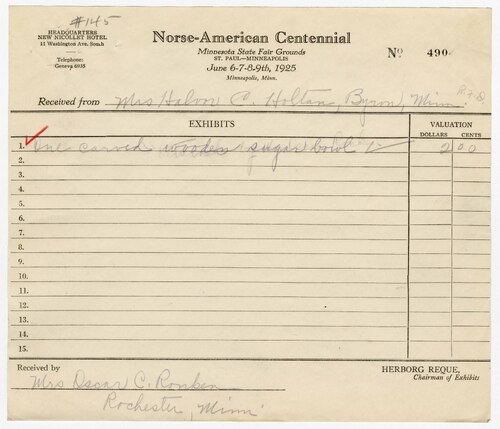 #145
HEADQUARTERS
NEW NICOLLET HOTEL
11 Washington Ave. South
Telephone:
Geneva 6935
Norse-American Centennial
Minnesota State Fair Grounds
ST. PAUL—MINNEAPOLIS
June 6-7-8-9th, 1925
Minneapolis, Minn.
No 490
Received from Mrs Halvor C. Holtan, Byron, Minn.
EXHIBITS
VALUATION
DOLLARS CENTS
1. One carved wooden sugar bowl 2 00
2.
3.
4.
5.
6.
7.
8.
9.
10.
11.
12.
13.
14.
15.
Received by
Mrs Oscar C. Ronken
Rochester, Minn.
HERBORG REQUE,
Chairman of Exhibits